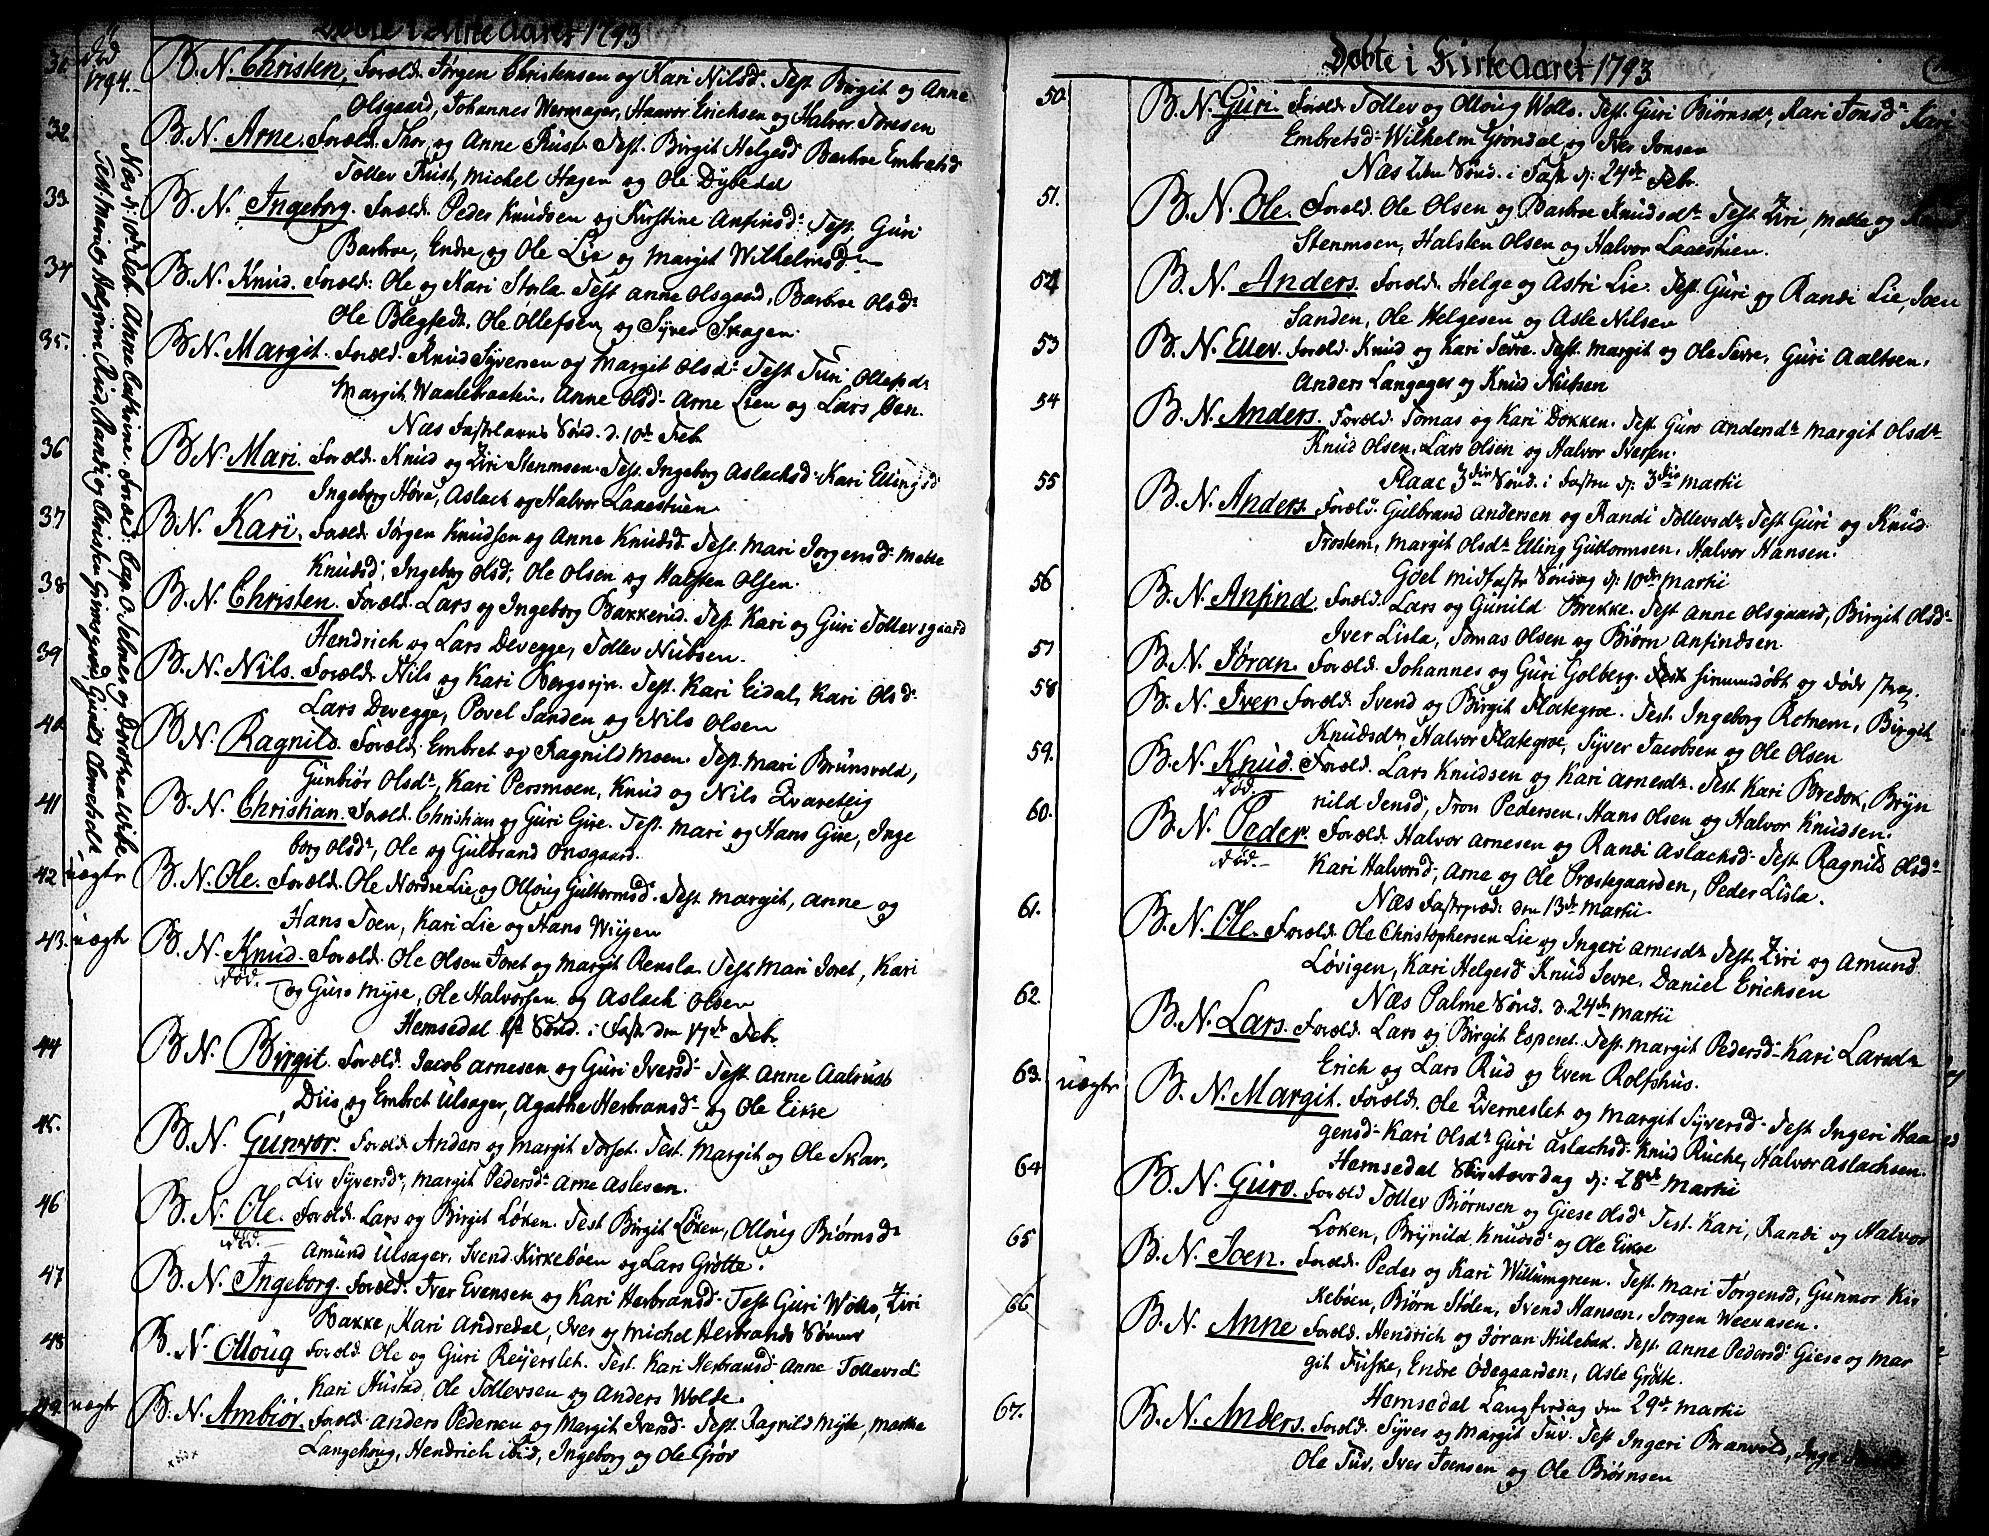 Døbte i Kirke Aaret 1793
31 død 1794. B. N. Christen, Foræld. Jørgen Christensen og Kari Nilsd. Test. Birgit og Anne
Olsgaard, Johannes Wermager, Haavor Erichsen og Halvor Toresen
32 B. N. Arne. Foræld. Thor og Anne Rust. Test. Birgit Helgesd Barbroe Embretsd
Tollev Rust, Michel Hagen og Ole Dybedal
33 B. N. Ingeborg. Foræld. Peder Knudsen og Kirstine Anfinsd. Test. Guri
Barbroe, Endre og Ole Lie og Margit Wilhelmsd
34 B. N. Knud. Foræld. Ole og Kari Storla. Test Anne Olsgaard, Barbroe Olsd
Ole Blegsedt, Ole Ollefsen og Syver Skagen.
35. B. N. Margit. Foræld. Knud Syversen og Margit Olsd. Test Turi Ollefsd
Margit Waalebraaten, Anne Olsd. Arne Lien og Lars Øen.
Næs Fastelavns Sønd. d. 10de Feb
36 B. N. Mari. Foræld. Knud og Ziri Stenmoen. Test. Ingeborg Aslachsd. Kari Ellingsd
Ingeborg Hove, Aslack og Halvor Laaestuen
37 B N. Kari. Foræld. Jørgen Knudsen og Anne Knudsd. Test. Mari Jorgensd. Mette
Knudsd, Ingeborg Olsd, Ole Olsen og Halsten Olsen.
38 B. N. Christen. Foræld. Lars og Ingeborg Bakkerud. Test. Kari og Guri Tollevsgaard
Hendrich og Lars Devegge, Tollev Nubsen.
39 B. N. Nils. Foræld. Nils og Kari Bergseje. Test. Kari Eidal, Kari Olsd.
Lars Devegge, Povel Sanden og Nils Olsen
40 B. N. Ragnild. Foræld. Embret og Ragnild Moen. Test. Mari Brunsvold,
Gunbiør Olsd, Kari Persmoen, Knud og Nils Zvareteig
41 B. N. Christian. Foræld. Christian og Guri Gire. Test. Mari og Hans Gire, Inge
borg Olsd, Ole og Gulbrand Onsgaard.
42 uægte B. N. Ole. Foræld. Ole Nordre Lie og Olloug Guttormsd. Test. Margit, Anne og
Hans Toen, Kari Lie og Hans Wiijen
43. uægte B. N. Knud. Foræld. Ole Olsen Joret og Margit Rensla. Test Mari Joret, Kari
død. og Guro Myre, Ole Halvorsen og Aslach Olsen
Hemsedal 1st Sønd. i Faste den 17de Febr
44 B. N. Birgit. Foræld. Jacob Arnesen og Guri Iversd. Test. Anne Aalrust
Diis og Embret Ulsager, Agathe Herbransd. og Ole Eikre
45. B. N. Gunvor. Foræld. Anders og Margit Torset. Test. Margit og Ole Skar,
Liv Syversd, Margit Pedersd. Arne Aslesen.
46 B. N. Ole. Foræld. Lars og Birgit Løken. Test Birgit Løken, Olloug Biørnsd
død. Amund Ulsager, Svend Kirkebøen og Lars Grøtte.
47 B. N. Ingeborg. Foræld. Iver Evensen og Kari Herbransd. Test Guri Wolle, Ziri
Bakke, Kari Andredal, Iver og Michel Herbrands Sønner
48 B. N. Olloug Foræld. Ole og Guri Reijerslet. Test. Kari Herbransd. Anne Tollevsd
Kari Hustad, Ole Tollevsen og Anders Wolde.
49 uægte B. N. Ambiør. Foræld. Anders Pedersen og Margit Iversd. Test. Ragnild Myre, Marthe
Langehoug, Hendrich ibid, Ingeborg og Ole Grøv
Næs d. 10de Feb. Anne Catrine. Foræld. Cap. O. Selmer og Dorothea Wirke
Test. Marie og Halgrim Rud, Randi og Christen Grimsgaard, Gunild Olmeholt
Døbte i Kirke Aaret 1793
50. B. N. Guri Foræld. Tollev og Olloug Wolle. Test. Guri Biørnsd, Kari Jonsd. Kari
Embretsd. Wilhelm Grøndal og Iver Jonsen
Næs 2den Sønd. i Faste d. 24de Febr.
51. B. N. Ole. Foræld. Ole Olsen og Barbroe Knudsd. Test Ziri, Mette og Knud
Stenmoen, Halsten Olsen og Halvor Laaestuen.
52 B. N. Anders. Foræld. Helge og Astri Lie. Test. Guri og Randi Lie, Joen
Sanden, Ole Helgesen og Asle Nilsen
53 B. N. Ellev. Foræld. Knud og Kari Sevre. Test. Margit og Ole Sevre, Guri Aaltoen,
Anders Langager og Knud Nubsen
54 B. N. Anders. Foræld. Tomas og Kari Dokken. Test. Guro Andersd. Margit Olsd.
Knud Olsen, Lars Olsen og Halvor Iversen.
Flaae 3die Sønd. i Fasten d. 3die Martii
55 B. N. Anders. Foræld. Gulbrand Andersen og Randi Tollevsd. Test Guri og Knud
Trostem, Margit Olsd. Elling Guttormsen, Halvor Hansen.
Goel Midfaste Søndag d. 10de Martii
56 B. N. Anfind Foræld. Lars og Gunild Brekke. Test Anne Olsgaard, Birgit Olsd.
Iver Lisla, Tomas Olsen og Biørn Anfindsen
57 B. N. Jøran. Foræld. Johannes og Guri Golberg. hiemmedøbt og døde strax.
58 B. N. Iver Foræld. Svend og Birgit Flategroe. Test. Ingeborg Rotnem, Birgit
Knudsd, Halvor Flategroe, Syver Jacobsen og Ole Olsen
59. B. N. Knud. Foræld. Lars Knudsen og Kari Arnesd. Test. Kari Bredok, Bryn
død. nild Jensd, Tron Pedersen, Hans Olsen og Halvor Knudsen.
60. B. N. Peder. Foræld. Halvor Arnesen og Randi Aslacksd. Test. Ragnild Olsd.
død. Kari Halvorsd, Arne og Ole Præstegaarden, Peder Lisla.
Næs Fastepræd. den 13de Martii
61. B. N. Ole. Foræld. Ole Christophersen Lie og Ingeri Arnesd. Test. Ziri og Amund
Løvigen, Kari Helgesd. Knud Sevre, Daniel Erichsen
Næs Palme Sønd. d. 24de Martii
62. B. N. Lars. Foræld. Lars og Birgit Espeset. Test. Margit Pedersd. Kari Larsd.
Erich og Lars Rud og Even Rolfshus.
63. uægte B. N. Margit. Foræld. Ole Zverneslet og Margit Syversd. Test Ingeri Haa
gensd. Kari Olsd. Guri Aslachsd. Knud Ruche, Halvor Aslachsen.
Hemsedal Skirtorsdag d. 28de Martii
64 B. N. Guro. Foræld Tollev Biørnsen og Giese Olsd. Test. Kari, Randi og Halvor
Løken, Brynild Knudsd. og Ole Eikre
65 B. N. Joen. Foræld. Peder og Kari Willumgreen. Test. Mari Jørgensd, Gunnor Kir
kebøen, Biørn Stolen, Svend Hansen, Jorgen Weenaasen.
66 B. N. Anne Foræld. Hendrich og Jøran Hulebak. Test. Anne Pedersd. Giese og Mar
git Fuske, Endre Ødegaarden, Asle Grøtte.
Hemsedal Langfredag den 29de Martii
67. B. N. Anders. Foræld. Syver og Margit Tuv. Test Ingeri Brænvold, Inge
Ole Tuv, Iver Joensen og Ole Biørnsen